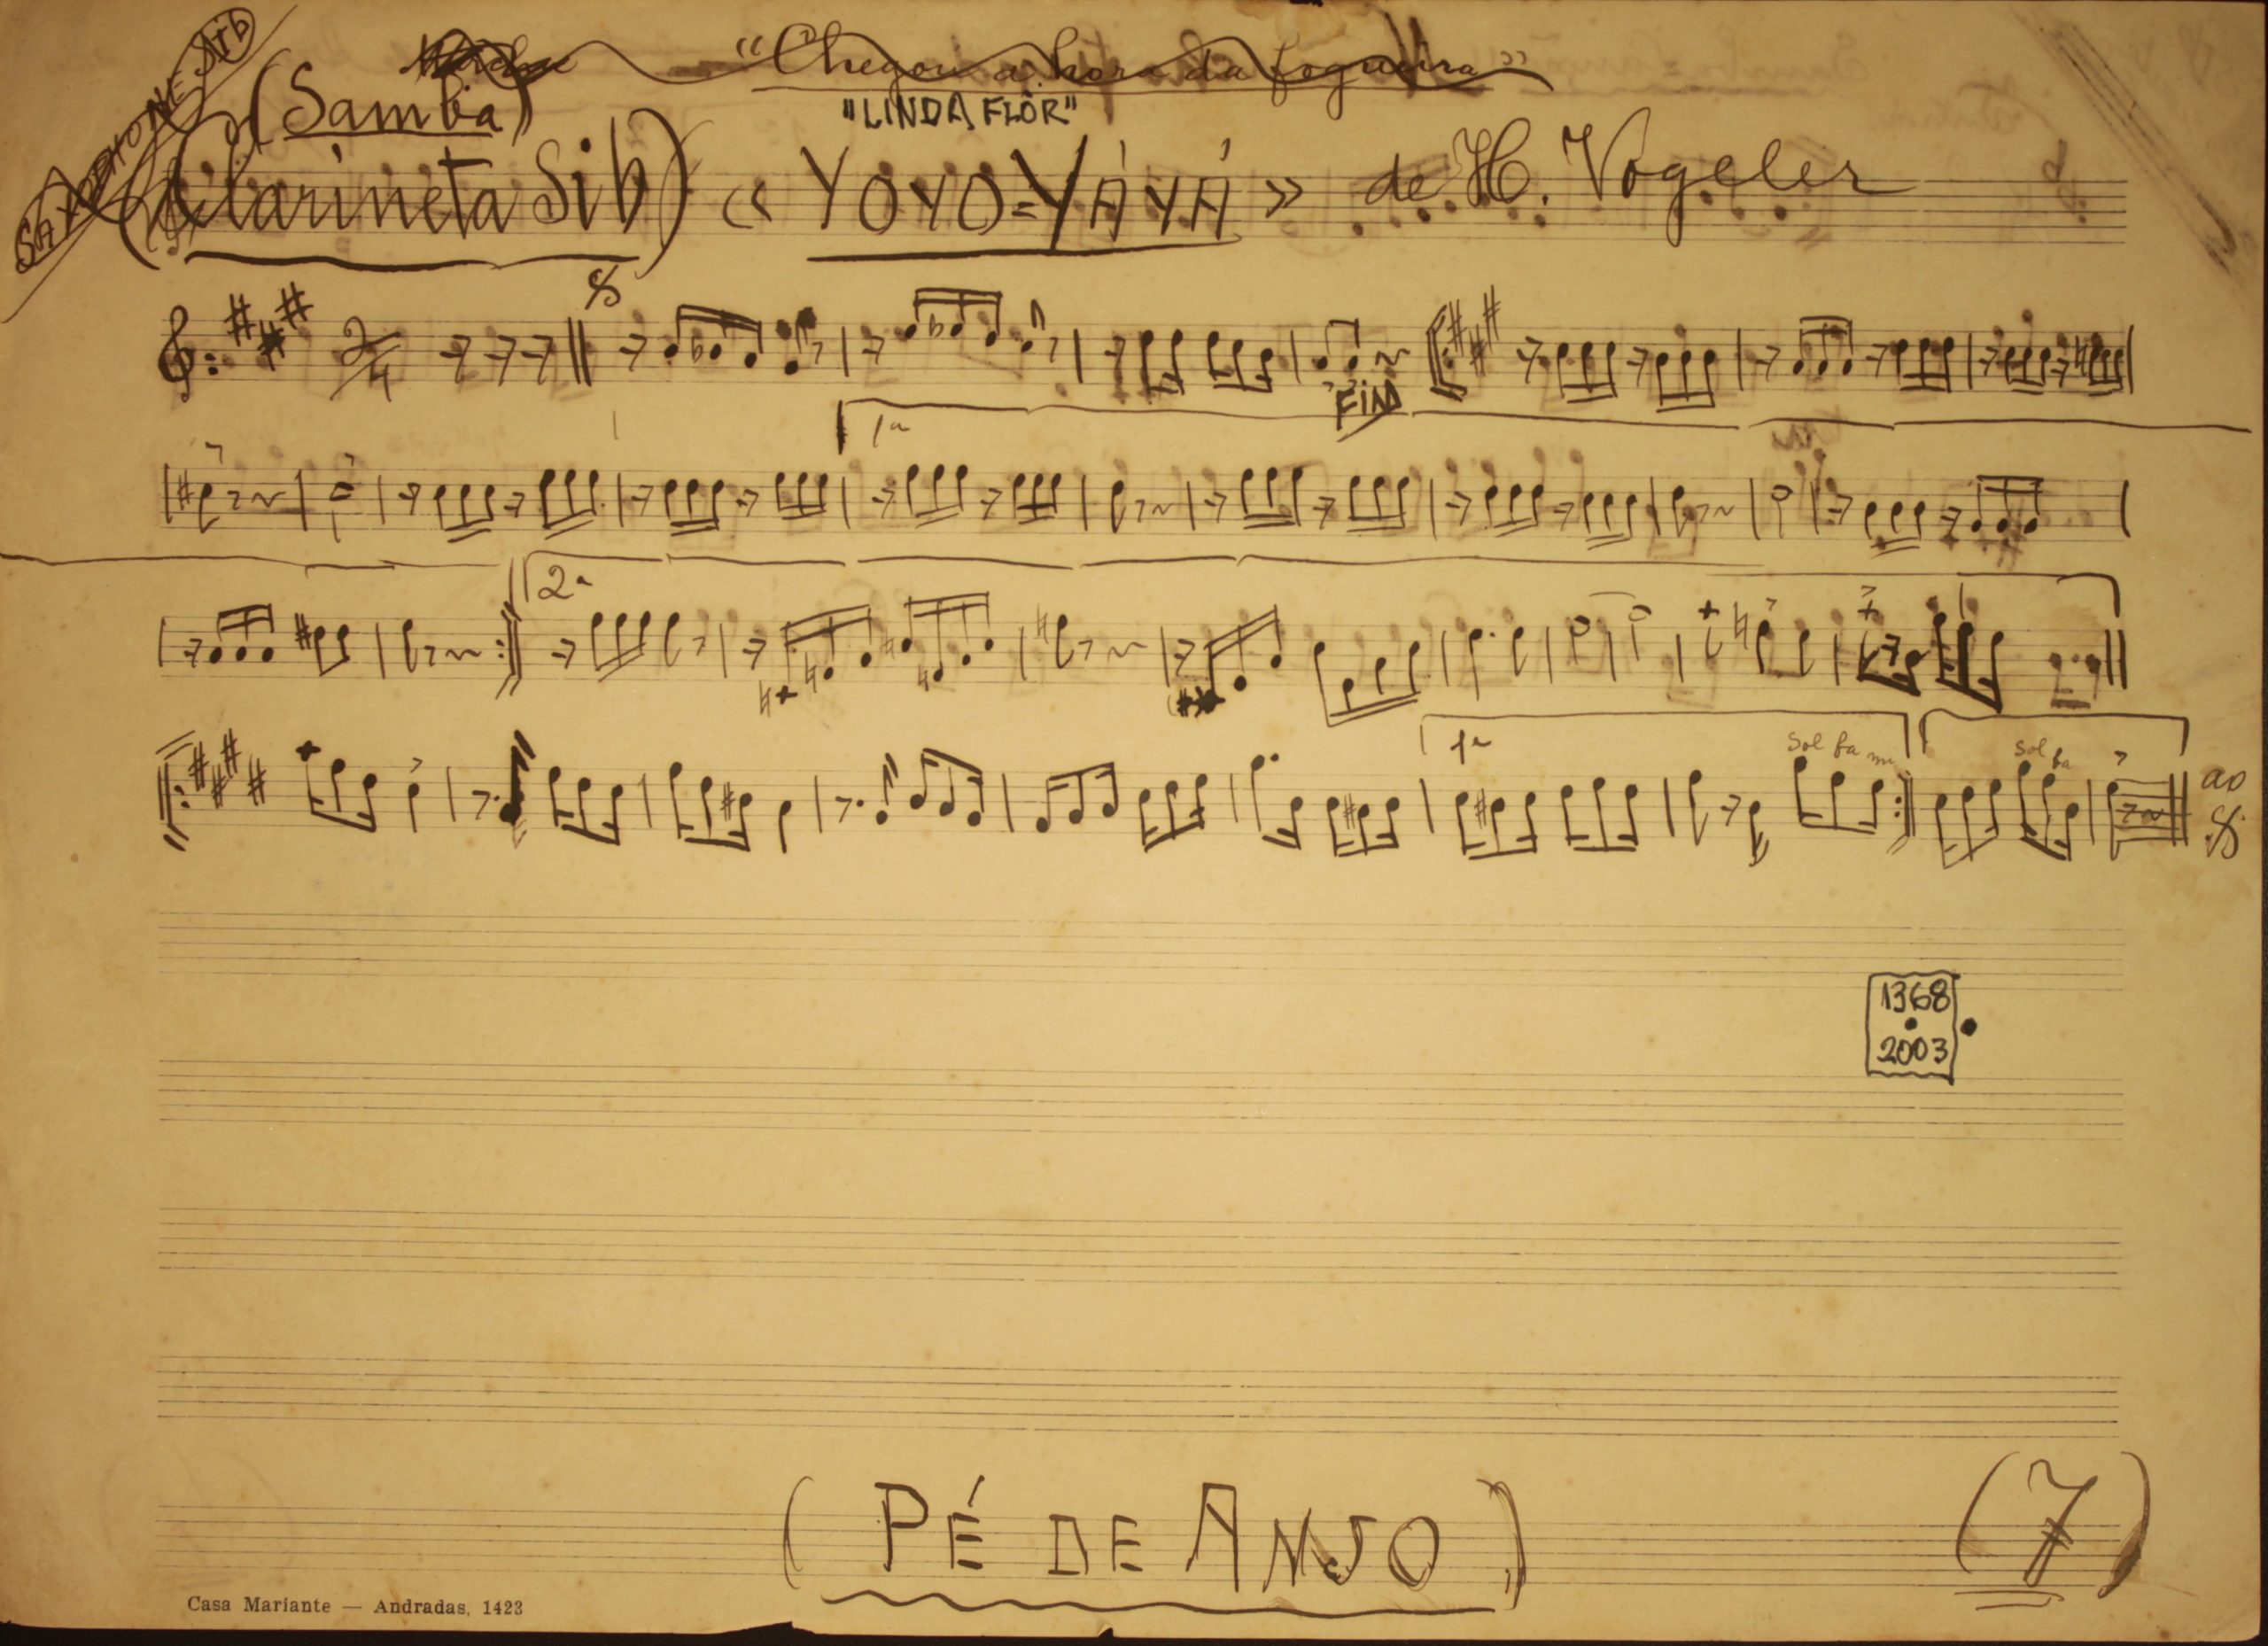 SAXOPHONE SIb
Marcha "Chegou a hora da fogueira"
(Samba) "LINDA FLÔR"
(Clarineta Sib) « YOYÔ=YÁYÁ » de H. Vogeler
2/4
FIM
1ª
2ª
1ª Sol fa mi sol fa
ao
1368
2003
(PÉ DE ANJO) (7)
Casa Mariante — Andradas, 1423